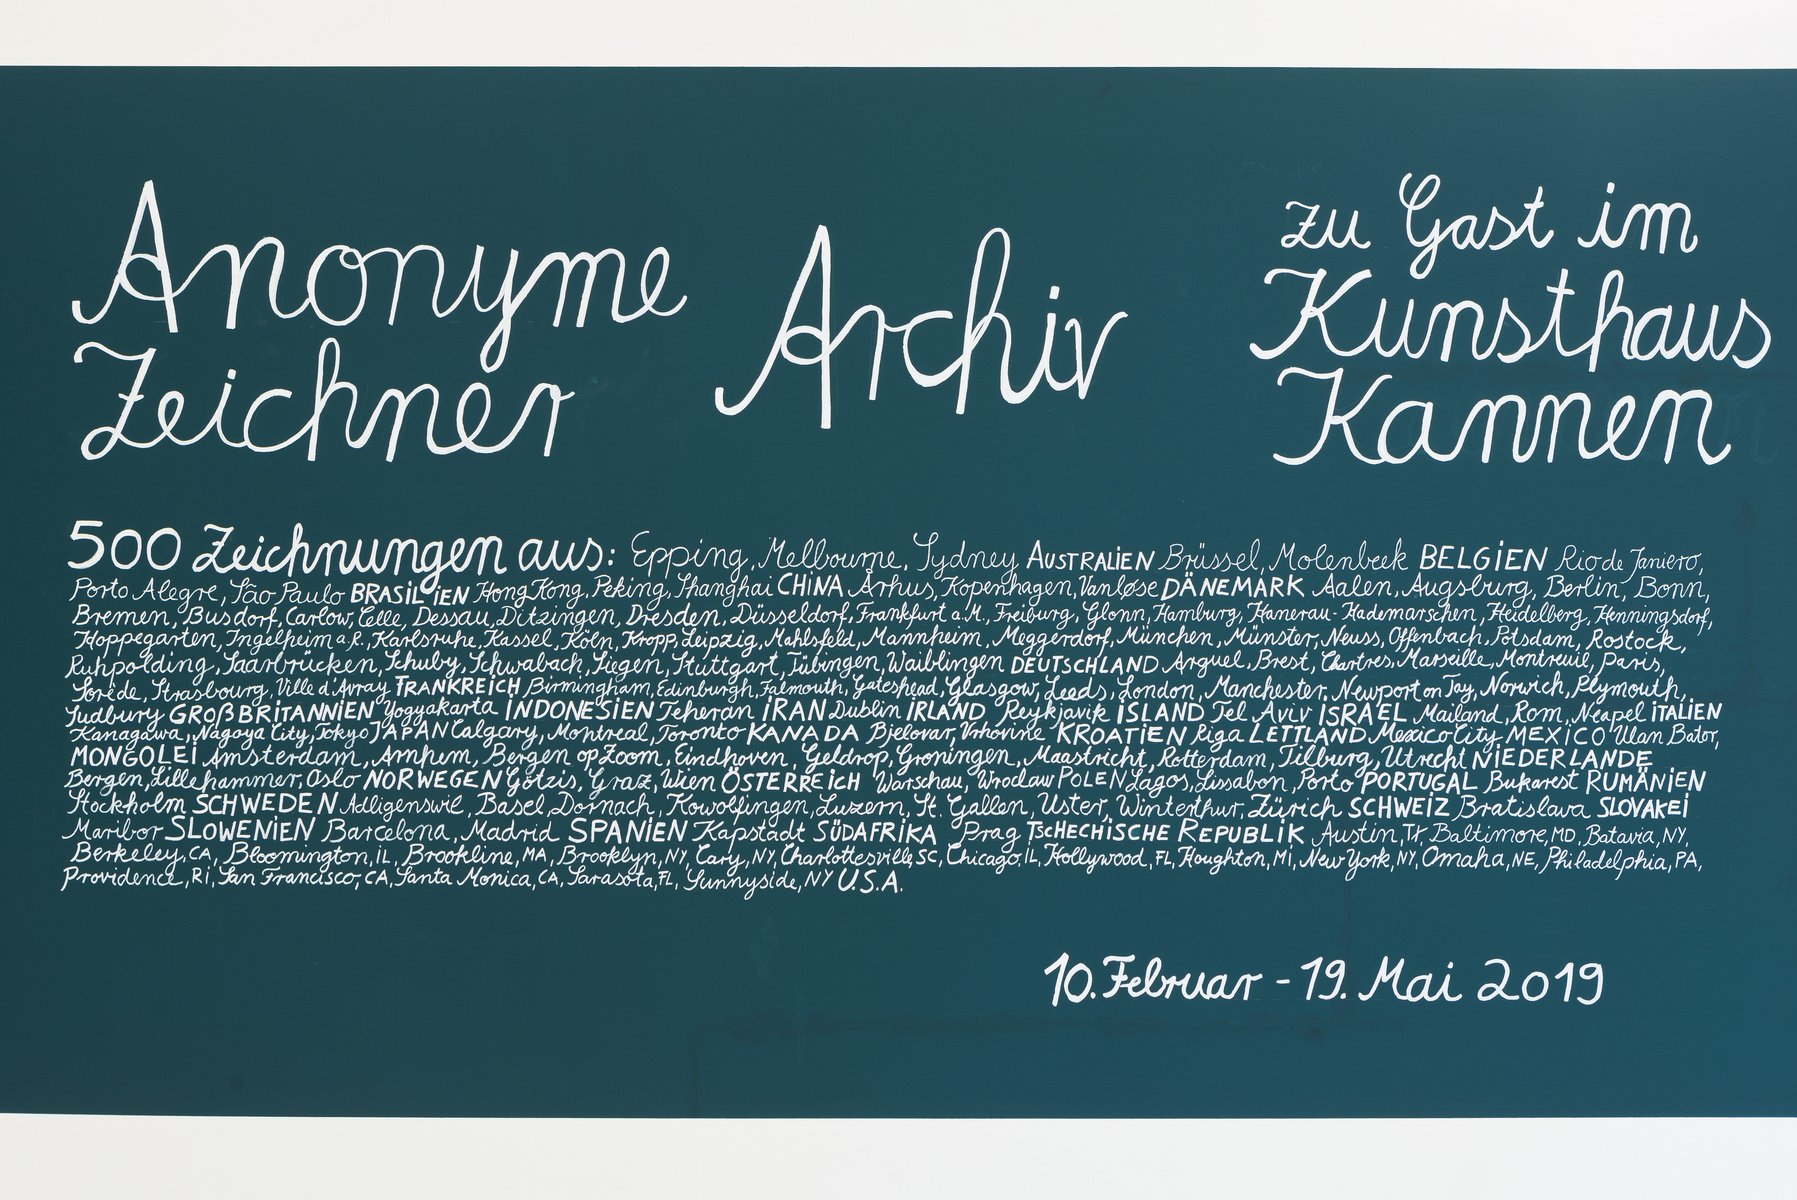 Anonyme Zeichner
Archiv
zu Gast im
Kunsthaus
Kannen
500 Zeichnungen aus: Epping, Melbourne, Sydney AUSTRALiEN Brüssel, Molenbeek BELGiEN Rio de Janiero,
Porto Alegre, São Paulo BRASiLiEN Hong Kong, Peking, Shanghai CHINA Arhus, Kopenhagen, Vanløse DÄNEMARK Aalen, Augsburg, Berlin, Bonn,
Bremen, Busdorf, Carlow, Celle, Dessau, Ditzingen, Dresden, Düsseldorf, Frankfurt a.M., Freiburg, Glonn, Hamburg, Hanerau-Hademarschen, Heidelberg, Henningsdorf,
Hoppegarten, Ingelheim a.R., Karlsruhe, Kassel, Köln, Kropp, Leipzig, Mahlsfeld, Mannheim, Meggerdorf, München, Münster, Neuss, Offenbach, Potsdam, Rostock,
Ruhpolding, Saarbrücken, Schuby, Schwabach, Siegen, Stuttgart, Tübingen, Waiblingen DEUTSCHLAND Arguel, Brest, Chartres, Marseille, Montreuil, Paris,
Sorède, Strasbourg, Ville d'Avray FRANKREiCH Birmingham, Edinburgh, Falmouth, Gateshead, Glasgow, Leeds, London, Manchester, Newport on Tay, Norwich, Plymouth,
Sudbury GROßBRiTANNiEN Yogyakarta iNDONESiEN Teheran iRAN Dublin iRLAND Reykjavik iSLAND Tel Aviv iSRAEL Mailand, Rom, Neapel iTALiEN
Kanagawa, Nagoya City, Tokyo JAPAN Calgary, Montreal, Toronto KANADA Bjelovar, Vrhovine KROATiEN Riga LETTLAND Mexico City MEXICO Ulan Bator,
MONGOLEi Amsterdam, Arnhem, Bergen op Zoom, Eindhoven, Geldrop, Groningen, Maastricht, Rotterdam, Tilburg, Utrecht NiEDERLANDE
Bergen, Lillehammer, Oslo NORWEGEN Götzis, Graz, Wien ÖSTERREiCH Warschau, Wroclaw POLEN Lagos, Lissabon, Porto PORTUGAL Bukarest RUMÄNiEN
Stockholm SCHWEDEN Adligenswil, Basel, Dornach, Kowolfingen, Luzern, St. Gallen, Uster, Winterthur, Zürich SCHWEiZ Bratislava SLOVAKEi
Maribor SLOWENiEN Barcelona, Madrid SPANiEN Kapstadt SÜDAFRiKA Prag TSCHECHiSCHE REPUBLiK Austin, TX, Baltimore, MD, Batavia, NY,
Berkeley, CA, Bloomington, IL, Brookline, MA, Brooklyn, NY, Cary, NY, Charlottesville, SC, Chicago, IL, Hollywood, FL, Houghton, Mi, New York, NY, Omaha, NE, Philadelphia, PA,
Providence, Ri, San Francisco, CA, Santa Monica, CA, Sarasota, FL, Sunnyside, NY U.S.A.
10. Februar - 19. Mai 2019